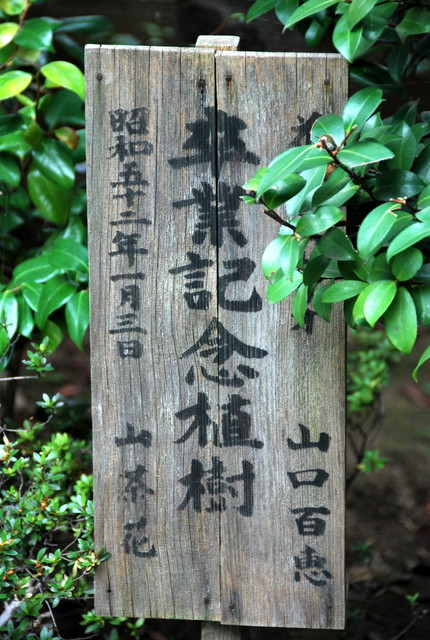 山口百恵
卒業記念植樹
昭和五十二年一月三日 山茶花